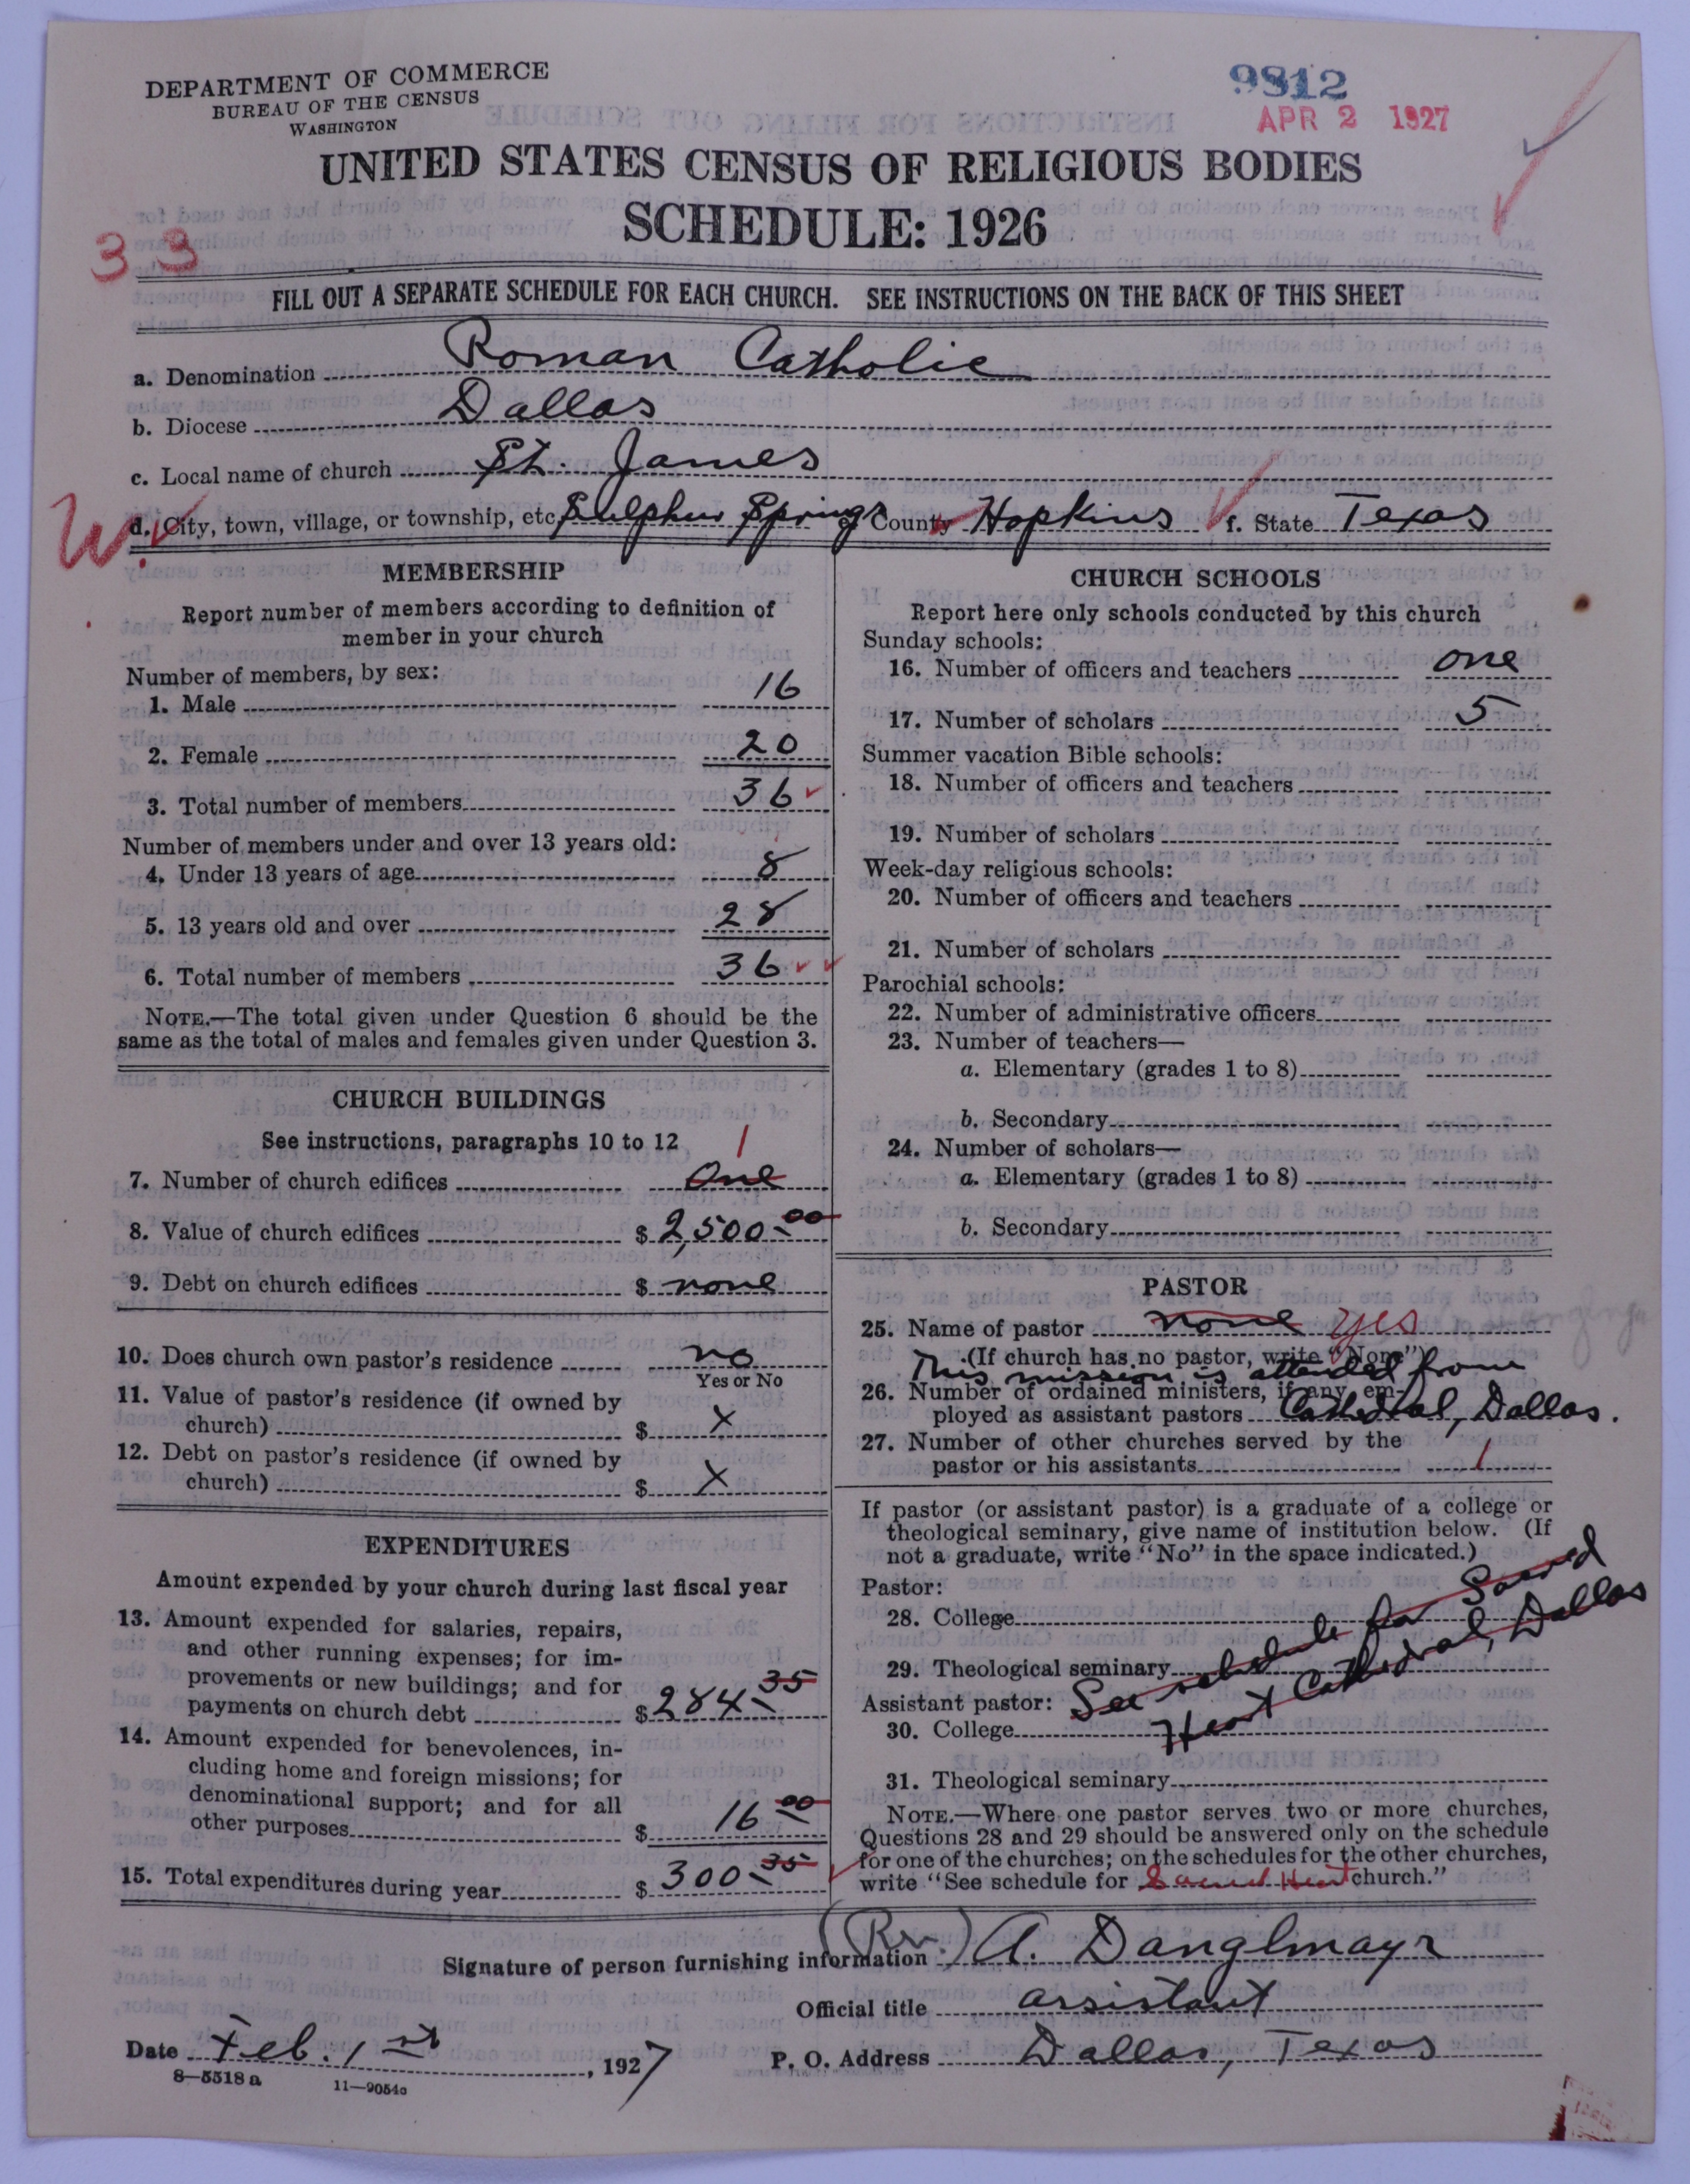 DEPARTMENT OF COMMERCE
BUREAU OF THE CENSUS
WASHINGTON
9812
APR 2 1927
UNITED STATES CENSUS OF RELIGIOUS BODIES
SCHEDULE: 1926
33
FILL OUT A SEPARATE SCHEDULE FOR EACH CHURCH. SEE INSTRUCTIONS ON THE BACK OF THIS SHEET
a. Denomination Roman Catholic
b. Diocese Dallas
c. Local name of church St. James
W. d. City, town, village, or township, etc. Sulphur Springs e. County Hopkins f. State Texas
MEMBERSHIP
Report number of members according to definition of
member in your church
Number of members, by sex:
1. Male 16
2. Female 20
3. Total number of members 36
Number of members under and over 13 years old:
4. Under 13 years of age 8
5. 13 years old and over 28
6. Total number of members 36
NOTE.—The total given under Question 6 should be the
same as the total of males and females given under Question 3.
CHURCH BUILDINGS
See instructions, paragraphs 10 to 12
1
7. Number of church edifices One
8. Value of church edifices $ 2,500.00
9. Debt on church edifices $ none
10. Does church own pastor's residence no
Yes or No
11. Value of pastor's residence (if owned by
church) $ X
12. Debt on pastor's residence (if owned by
church) $ X
EXPENDITURES
Amount expended by your church during last fiscal year
13. Amount expended for salaries, repairs,
and other running expenses; for im-
provements or new buildings; and for
payments on church debt $ 284.35
14. Amount expended for benevolences, in-
cluding home and foreign missions; for
denominational support; and for all
other purposes $ 16.00
15. Total expenditures during year $ 300.35
CHURCH SCHOOLS
Report here only schools conducted by this church
Sunday schools:
16. Number of officers and teachers one
17. Number of scholars 5
Summer vacation Bible schools:
18. Number of officers and teachers
19. Number of scholars
Week-day religious schools:
20. Number of officers and teachers
21. Number of scholars
Parochial schools:
22. Number of administrative officers
23. Number of teachers—
a. Elementary (grades 1 to 8)
b. Secondary
24. Number of scholars—
a. Elementary (grades 1 to 8)
b. Secondary
PASTOR
25. Name of pastor none yes
(If church has no pastor, write "None")
This mission is attended from
26. Number of ordained ministers, if any, em-
ployed as assistant pastors Cathedral, Dallas.
27. Number of other churches served by the
pastor or his assistants 1
If pastor (or assistant pastor) is a graduate of a college or
theological seminary, give name of institution below. (If
not a graduate, write "No" in the space indicated.)
Pastor:
28. College
29. Theological seminary
See schedule for Sacred
Heart Cathedral, Dallas
Assistant pastor:
30. College
31. Theological seminary
NOTE.—Where one pastor serves two or more churches,
Questions 28 and 29 should be answered only on the schedule
for one of the churches; on the schedules for the other churches,
write "See schedule for Sacred Heart church."
Signature of person furnishing information (Rev.) A. Danglmayr
Official title assistant
Date Feb. 1st, 1927
P. O. Address Dallas, Texas
8—5518a 11—9054a